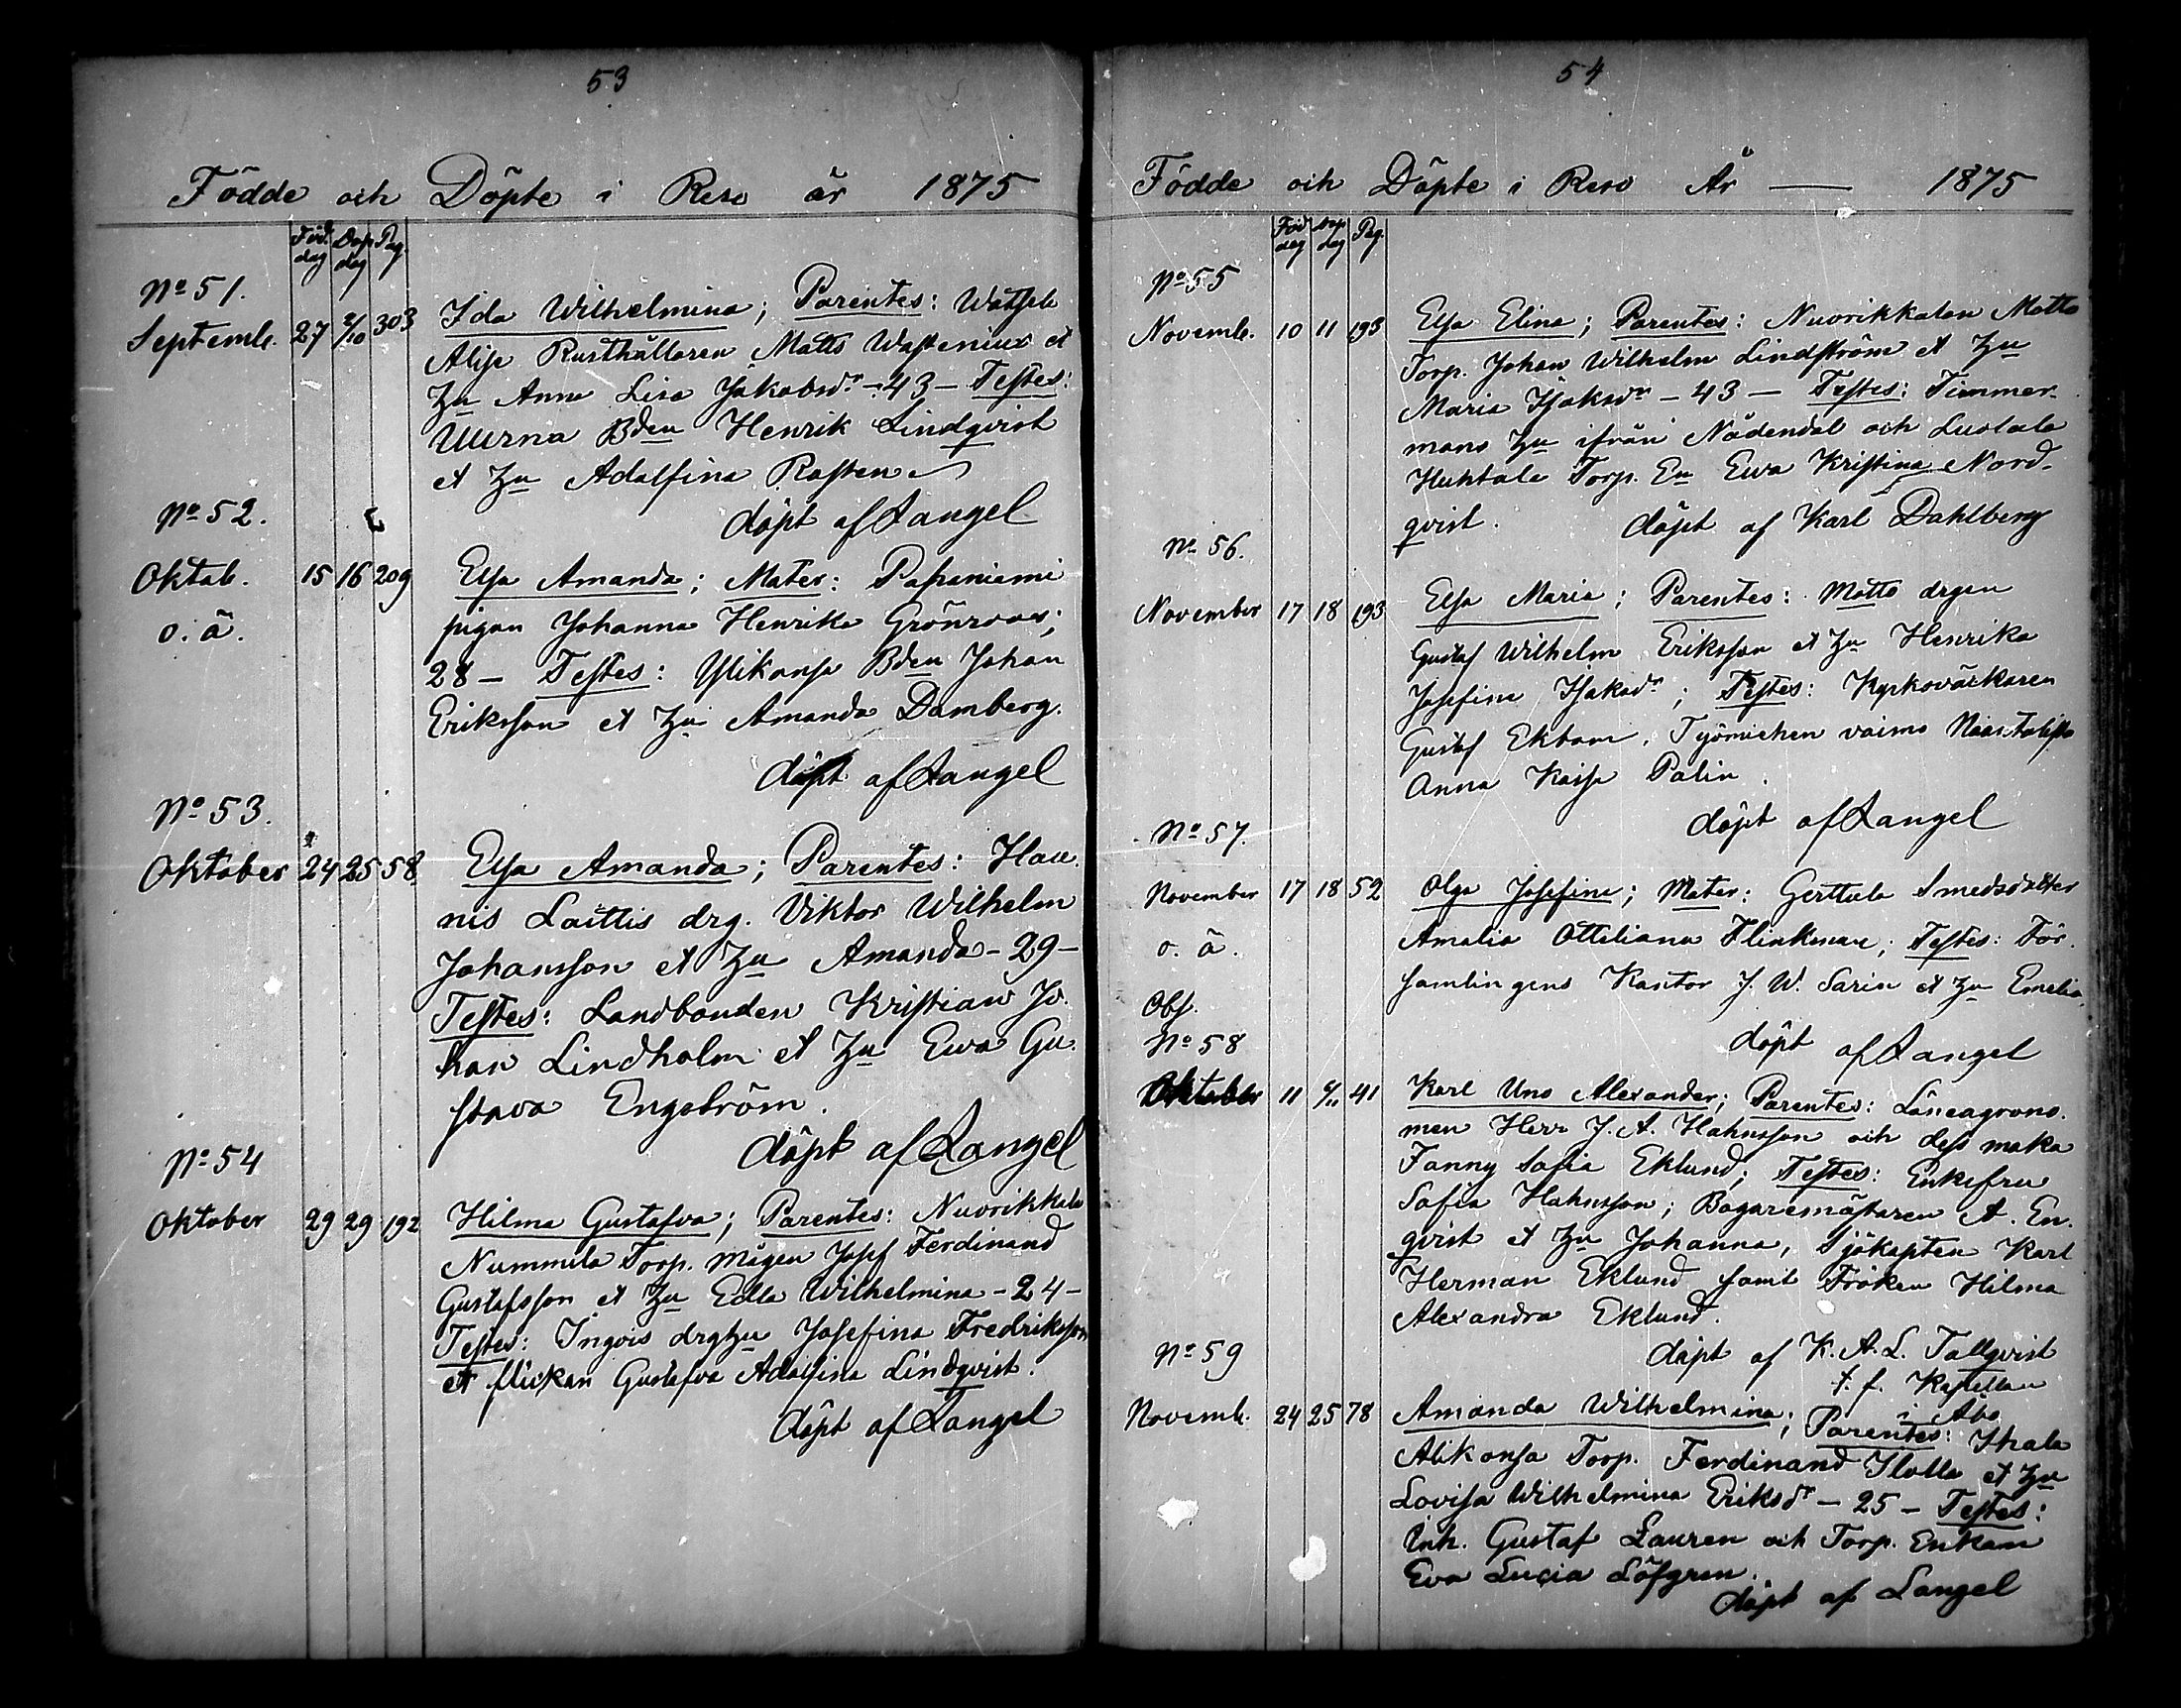 53
Födde och Döpte i Reso år 1875
Föd. dag Dop dag Pag.
No 51.
Septemb. 27 2/10 303 Ida Wilhelmina; Parentes: Watsela
Alise Rusthållaren Matts Wastenius et
Hu Anna Lisa Jakobsdr - 43 - Testes:
Uurna Bden Henrik Lindqvist
et Hu Adolfina Rosten
döpt af Langel
No 52.
Oktob. 15 16 209 Elsa Amanda; Mater: Papaniemi
o. ä. pigan Johanna Henrika Grönroos;
28 - Testes: Ylikonsa Bden Johan
Eriksson et Hu Amanda Damberg.
döpt af Langel
No 53.
Oktober 24 25 58 Elsa Amanda; Parentes: Hau-
nis Laittis drg. Viktor Wilhelm
Johansson et Hu Amanda - 29 -
Testes: Landbonden Kristian Jo-
han Lindholm et Hu Ewa Gu-
stava Engström.
döpt af Langel
No 54
Oktober 29 29 192 Hilma Gustafva; Parentes: Nuorikkala
Nummela Torp. mågen Josef Ferdinand
Gustafsson et Hu Edla Wilhelmina - 24 -
Testes: Ingois drghu Josefina Fredriksson
et flickan Gustafva Adolfina Lindqvist.
döpt af Langel
54
Födde och Döpte i Reso År — 1875
Föd dag Dop dag Pag.
No 55
Novemb. 10 11 193 Elsa Elina; Parentes: Nuorikkalan Matto
Torp. Johan Wilhelm Lindström et Hu
Maria Isaksdr - 43 - Testes: Timmer-
mans Hu ifrån Nådendal och Luolala
Huhtala Torp. En Ewa Kristina Nord-
qvist. döpt af Karl Dahlberg
No 56.
November 17 18 193 Elsa Maria; Parentes: Matto drgen
Gustaf Wilhelm Eriksson et Hu Henrika
Josefina Isaksdr; Testes: Kyrkoväckaren
Gustaf Ekbom, Työmiehen vaimo Naantalista
Anna Kaisa Palin.
döpt af Langel
No 57.
November 17 18 52 Olga Josefina; Mater: Gerttula Smedsdotter
o. ä. Amalia Ottiliana Flinkman; Testes: För-
samlingens Kantor J. W. Sarin et Hu Emelia.
döpt af Langel
Obs.
No 58
Oktober 11 6/11 41 Karl Uno Alexander; Parentes: Läneagrono-
men Herr J. A. Hahnsson och dess maka
Fanny Sofia Eklund; Testes: Enkefru
Sofia Hahnsson; Bagaremästaren A. En-
qvist et Hu Johanna, Sjökapten Karl
Herman Eklund samt Fröken Hilma
Alexandra Eklund.
döpt af K. A. L. Tallqvist
t. f. Kapellan
i Åbo
No 59
Novemb. 24 25 78 Amanda Wilhelmina; Parentes: Ihala
Alikonsa Torp. Ferdinand Ilola et Hu
Lovisa Wilhelmina Eriksdr - 25 - Testes:
Inh. Gustaf Lauren och Torp. Enkan
Eva Lucia Löfgren.
döpt af Langel